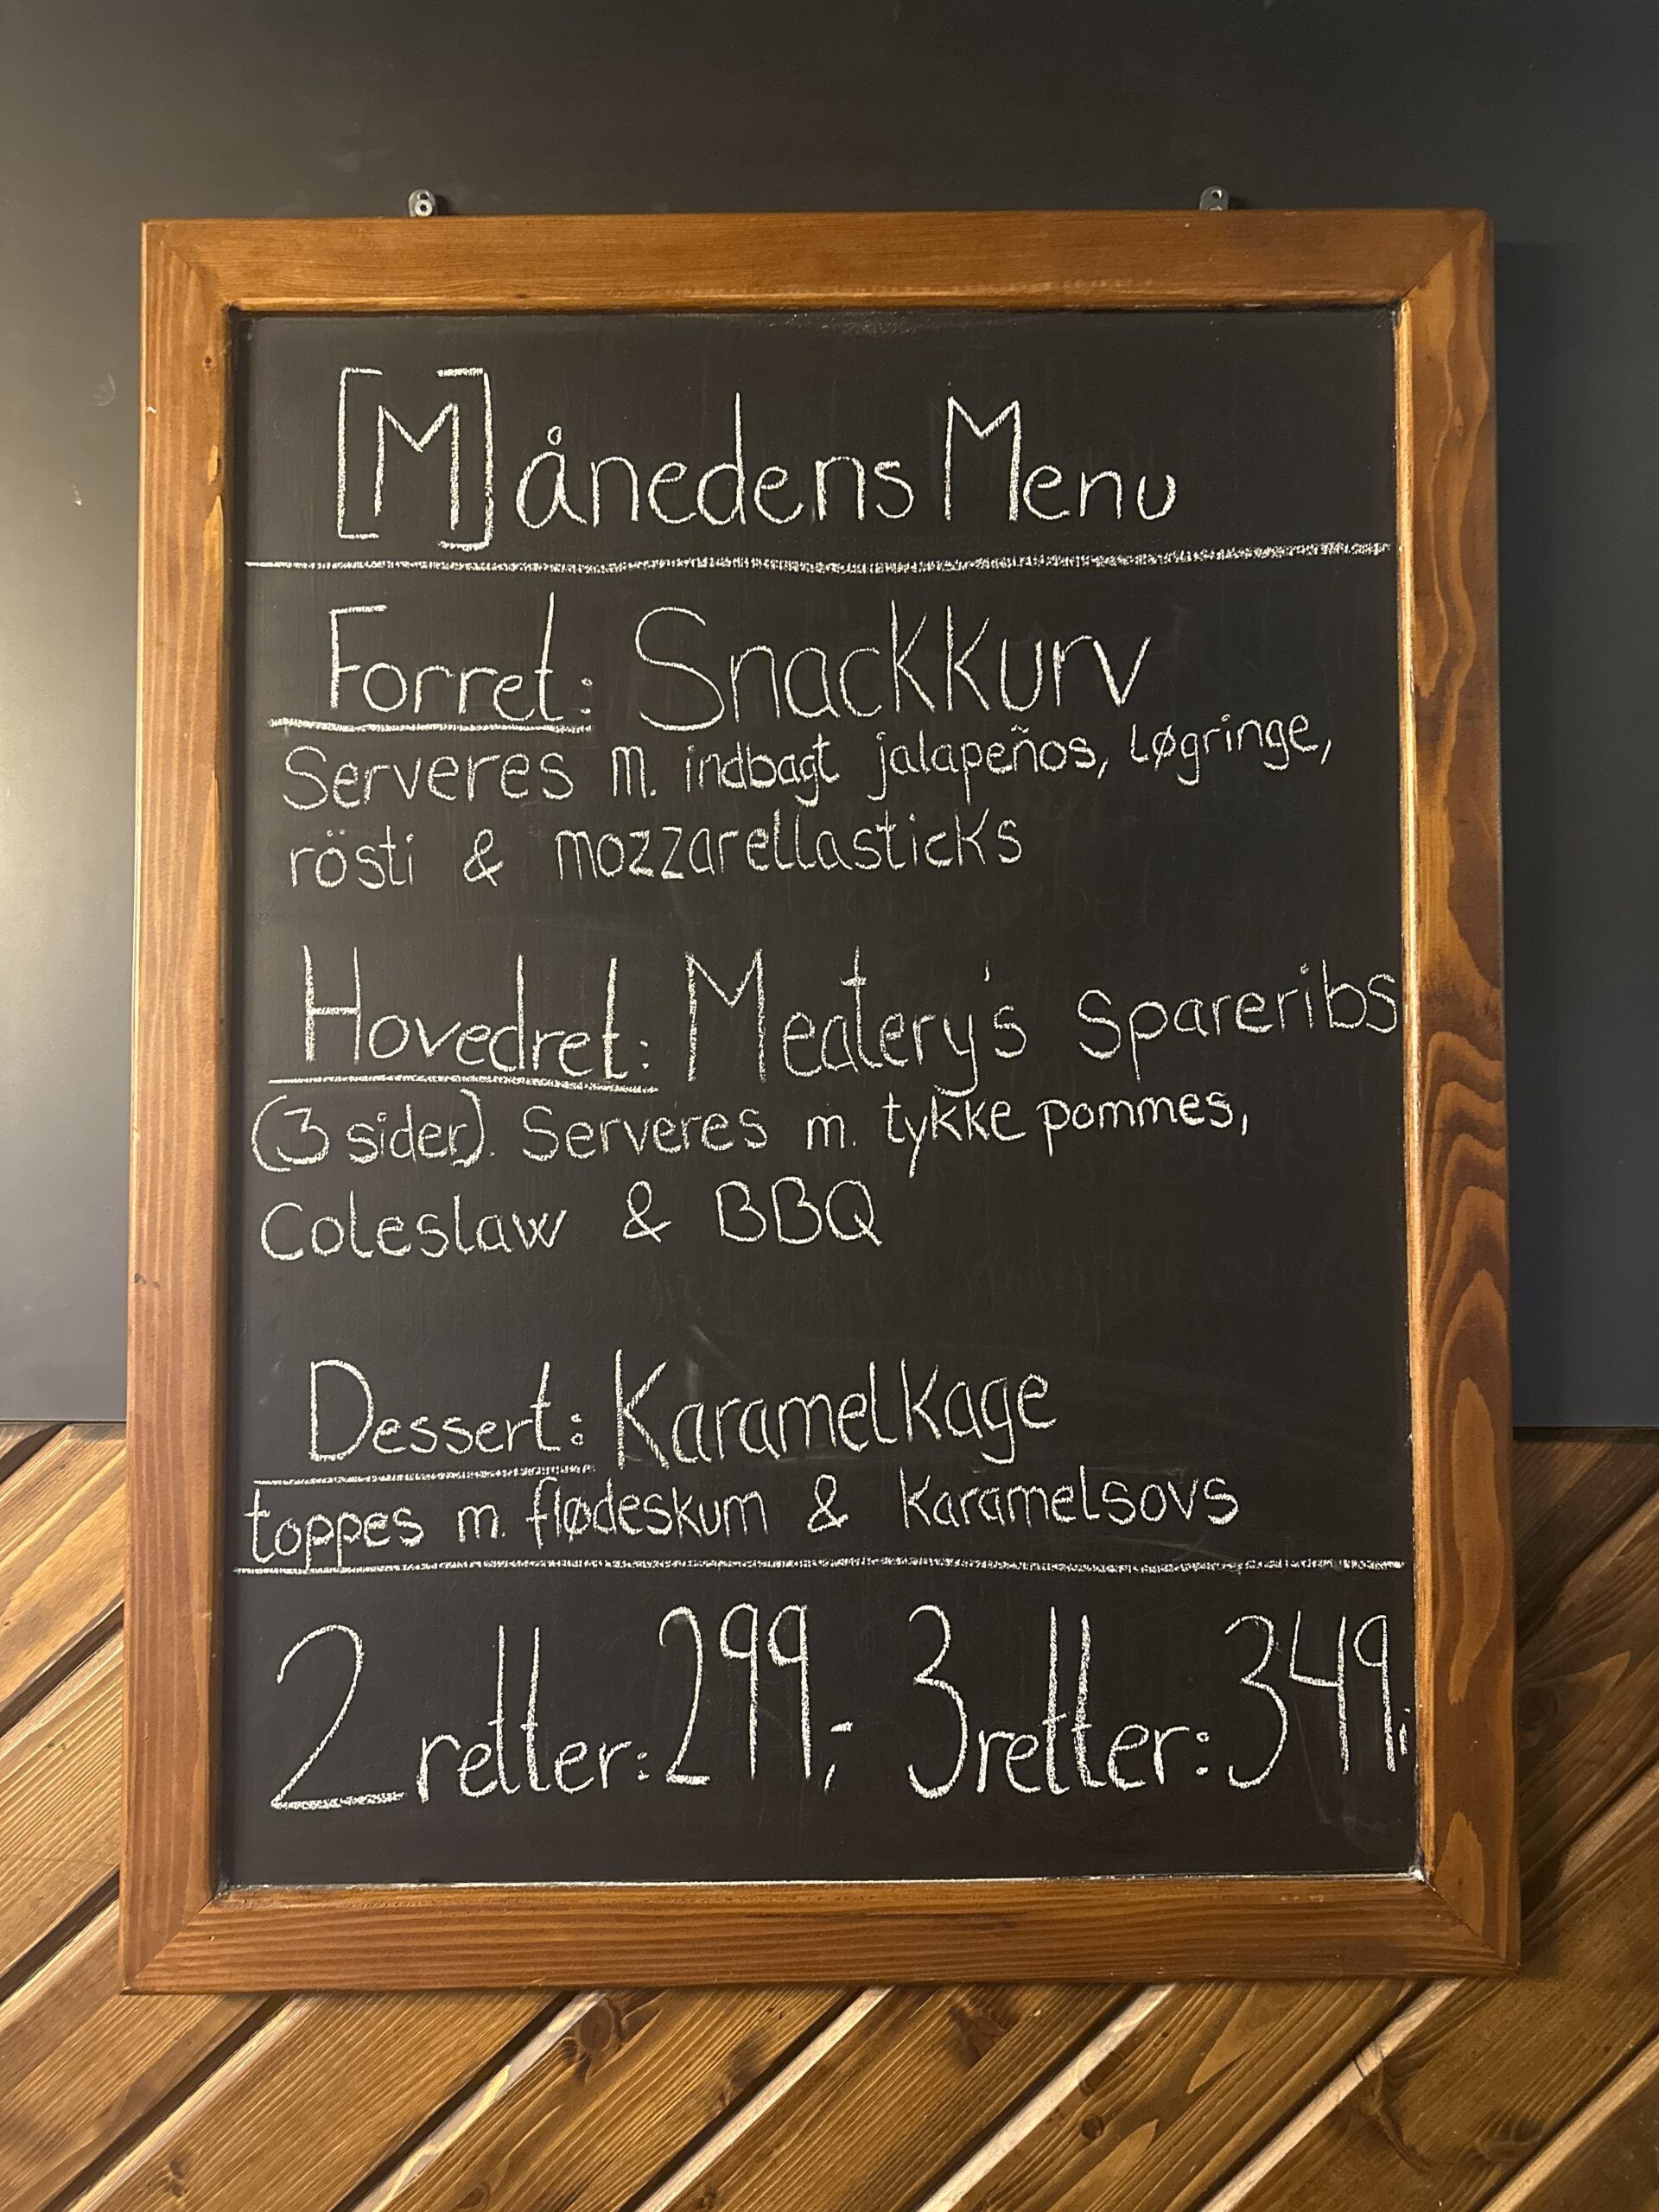 [M]ånedens Menu
Forret: Snackkurv
Serveres m. indbagt jalapeños, løgringe,
rösti & mozzarellasticks
Hovedret: Meatery's Spareribs
(3 sider). Serveres m. tykke pommes,
Coleslaw & BBQ
Dessert: Karamelkage
toppes m. flødeskum & Karamelsovs
2 retter: 299,- 3 retter: 349,-